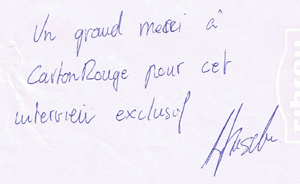 Un grand merci à
CartonRouge pour cet
interview exclusif